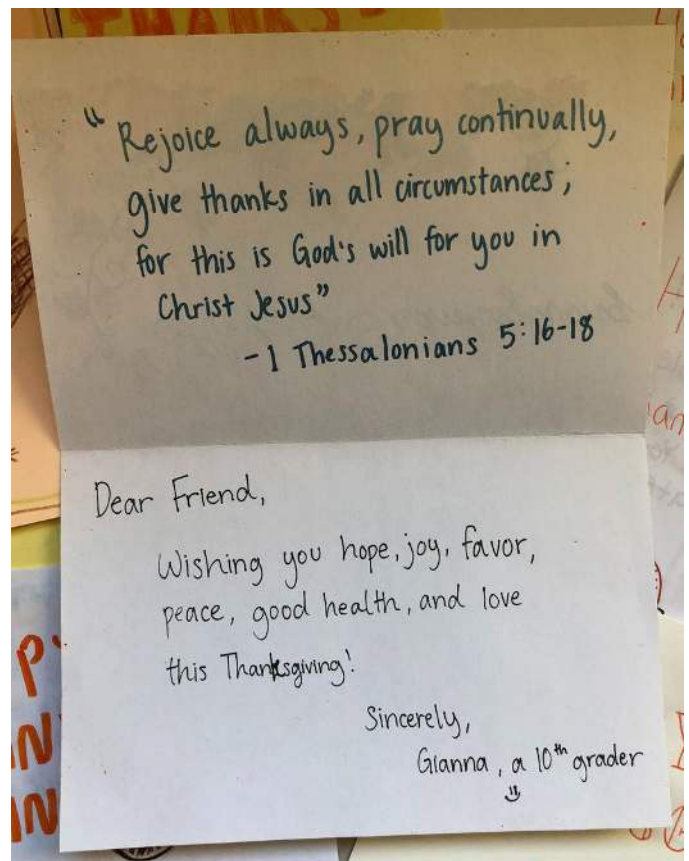 THANKS
"Rejoice always, pray continually,
give thanks in all circumstances;
for this is God's will for you in
Christ Jesus"
-1 Thessalonians 5:16-18
Dear Friend,
Wishing you hope, joy, favor,
peace, good health, and love
this Thanksgiving!
Sincerely,
Gianna, a 10th grader